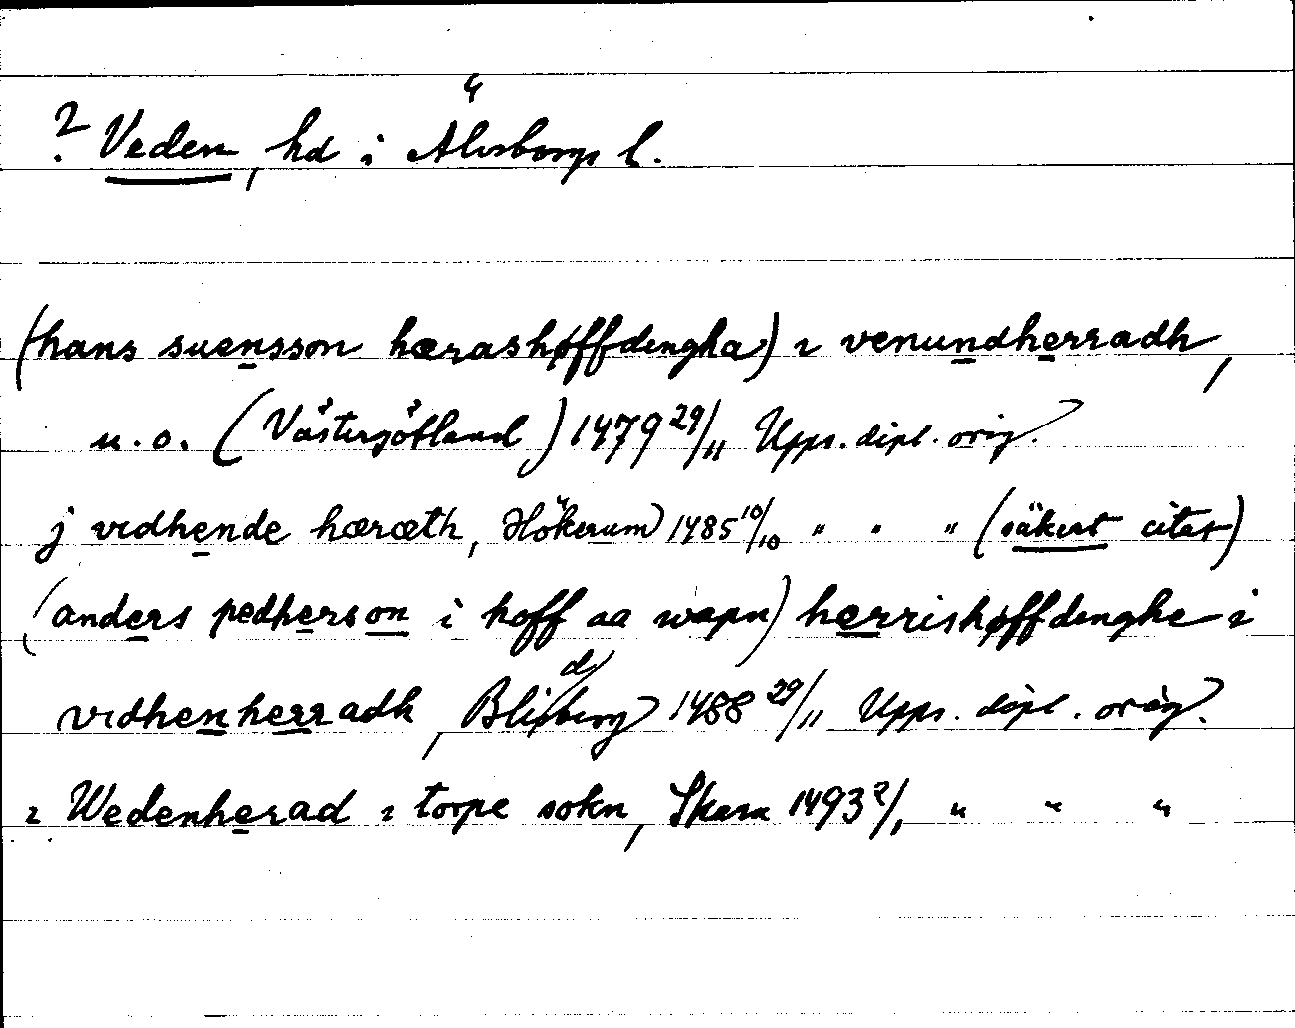 ? Veden, hd i Älvsborgs l.
(hans suensson hærashøffdingha) ı venundherradh,
u.o. (Västergötland) 1479 29/11 Upps. dipl. orig.
j vıdhende hæræth, Hökerum 1485 10/10 " " " (säkert citat)
(anders pedherson i hoff aa wapn) hærrishøffdinghe i
vıdhenherradh, Blidberg 1488 29/11 Upps. dipl. orig.
ı Wedenherad ı torpe sokn, Skara 1493 2/1 " " "